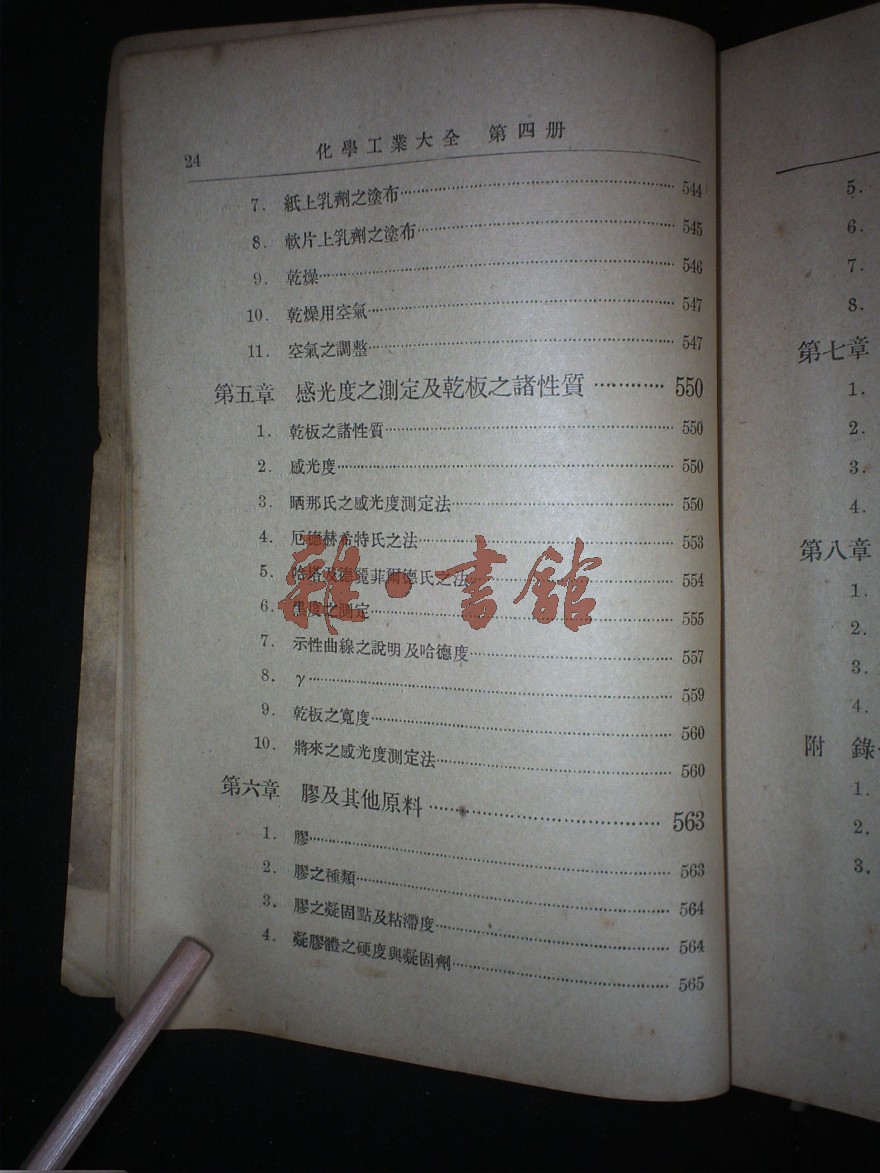 24 化學工業大全 第四册
7. 紙上乳劑之塗布 544
8. 軟片上乳劑之塗布 545
9. 乾操 546
10. 乾燥用空氣 547
11. 空氣之調整 547
第五章 感光度之測定及乾板之諸性質 550
1. 乾板之諸性質 550
2. 感光度 550
3. 晒那氏之感光度測定法 550
4. 厄德赫希特氏之法 553
5. 哈塔及德麗菲爾德氏之法 554
6. 黑度之測定 555
7. 示性曲線之說明及哈德度 557
8. γ 559
9. 乾板之寬度 560
10. 將來之感光度測定法 560
第六章 膠及其他原料 563
1. 膠 563
2. 膠之種類 564
3. 膠之凝固點及粘滯度 564
4. 凝膠體之硬度與凝固劑 565
雜·書館
5.
6.
7.
8.
第七章
1.
2.
3.
4.
第八章
1.
2.
3.
4.
附錄
1.
2.
3.